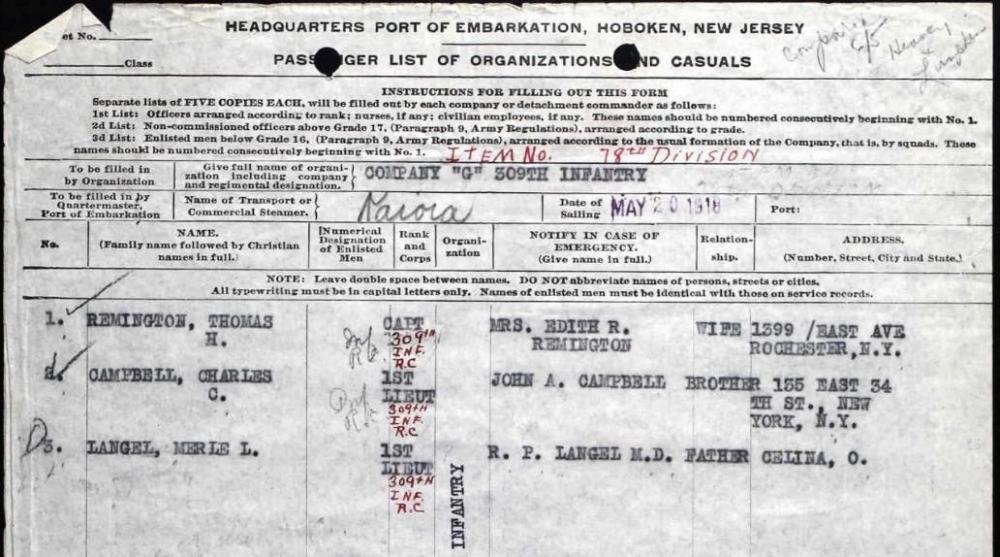 et No.
HEADQUARTERS PORT OF EMBARKATION, HOBOKEN, NEW JERSEY
Class
PASS GER LIST OF ORGANIZATIONS ND CASUALS
INSTRUCTIONS FOR FILLING OUT THIS FORM
Separate lists of FIVE COPIES EACH, will be filled out by each company or detachment commander as follows:
1st List: Officers arranged according to rank; nurses, if any; civilian employees, if any. These names should be numbered consecutively beginning with No. 1.
2d List: Non-commissioned officers above Grade 17, (Paragraph 9, Army Regulations), arranged according to grade.
3d List: Enlisted men below Grade 16, (Paragraph 9, Army Regulations), arranged according to the usual formation of the Company, that is, by squads. These
names should be numbered consecutively beginning with No. 1. ITEM No. 78th Division
To be filled in by Organization
Give full name of organization including company and regimental designation.
COMPANY "G" 309TH INFANTRY
To be filled in by Quartermaster, Port of Embarkation
Name of Transport or Commercial Steamer.
Date of Sailing MAY 20 1918 Port:
No. NAME. (Family name followed by Christian names in full.) Numerical Designation of Enlisted Men Rank and Corps Organization NOTIFY IN CASE OF EMERGENCY. (Give name in full.) Relationship. ADDRESS. (Number, Street, City and State.)
NOTE: Leave double space between names. DO NOT abbreviate names of persons, streets or cities.
All typewriting must be in capital letters only. Names of enlisted men must be identical with those on service records.
1. REMINGTON, THOMAS CAPT MRS. EDITH R. WIFE 1399 /EAST AVE
H. 309th REMINGTON ROCHESTER, N.Y.
INF.
R.C
2. CAMPBELL, CHARLES 1ST JOHN A. CAMPBELL BROTHER 135 EAST 34
C. LIEUT TH ST., NEW
309TH YORK, N.Y.
INF.
R.C
D3. LANGEL, MERLE L. 1ST R. P. LANGEL M.D. FATHER CELINA, O.
LIEUT
309TH
INF.
R.C
INFANTRY